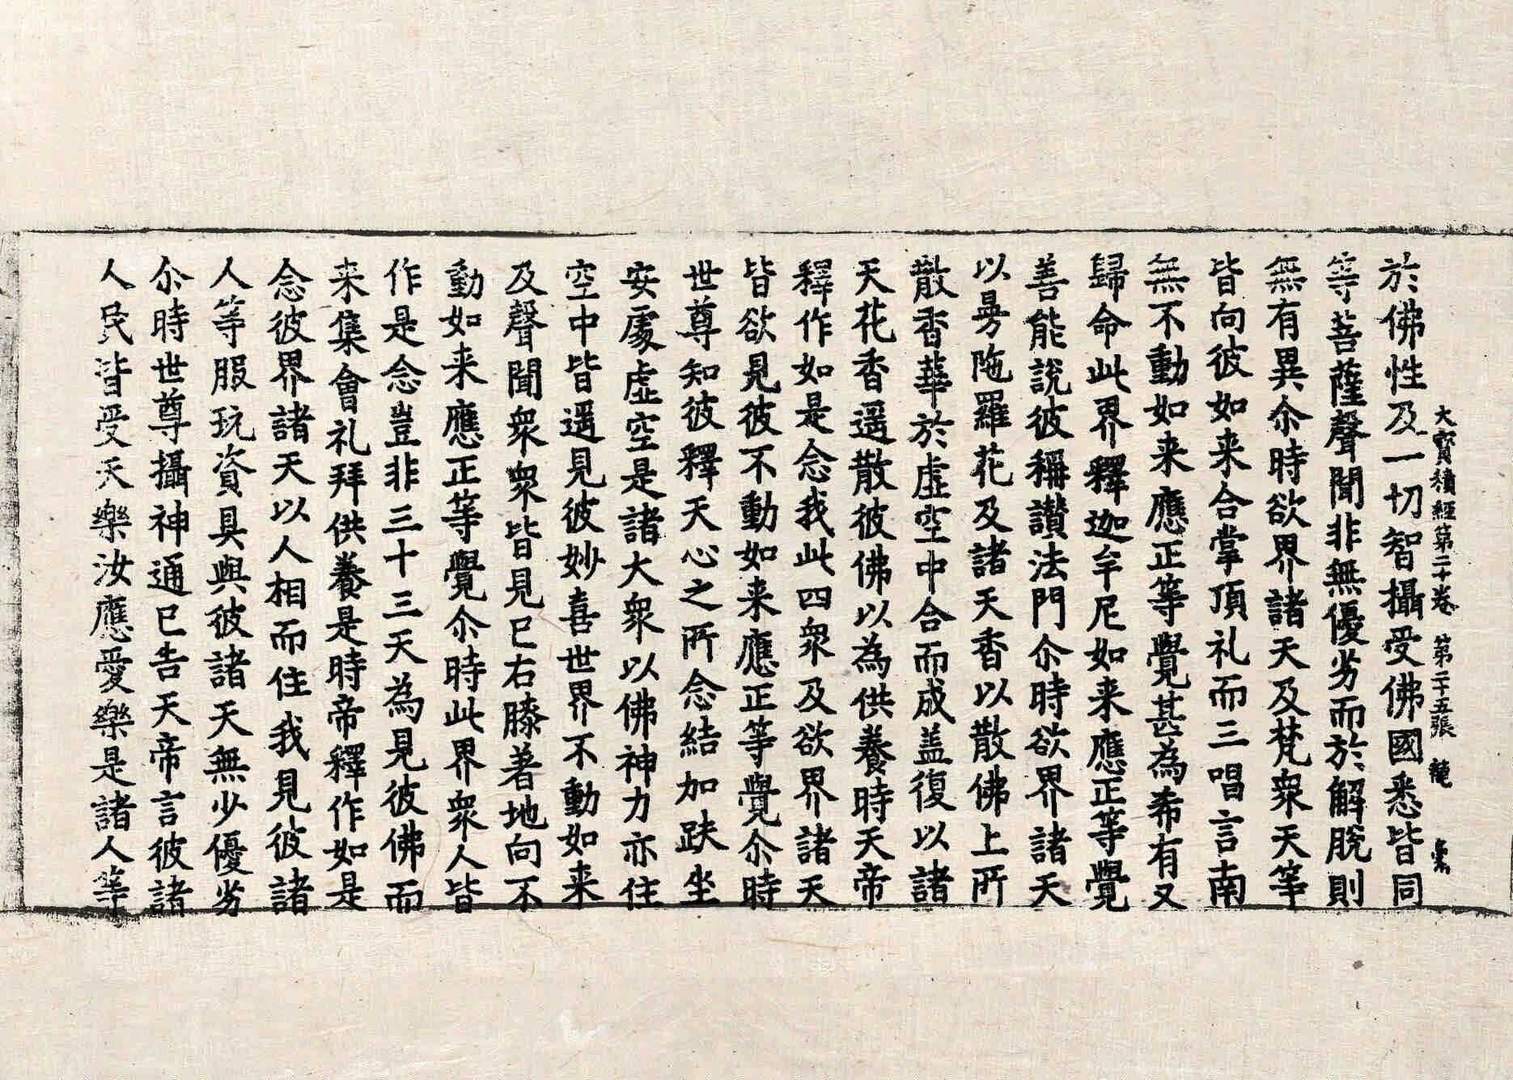 大寶積經第二十卷　第二十五張　龍
於佛性及一切智攝受佛國悉皆同
等菩薩聲聞非無優劣而於解脫則
無有異尒時欲界諸天及梵衆天等
皆向彼如来合掌頂礼而三唱言南
無不動如来應正等覺甚為希有又
歸命此界釋迦牟尼如来應正等覺
善能說彼稱讃法門尒時欲界諸天
以曼陁羅花及諸天香以散佛上所
散香華於虛空中合而成盖復以諸
天花香遥散彼佛以為供養時天帝
釋作如是念我此四衆及欲界諸天
皆欲見彼不動如来應正等覺尒時
世尊知彼釋天心之所念結加趺坐
安處虛空是諸大衆以佛神力亦住
空中皆遥見彼妙喜世界不動如来
及聲聞衆衆皆見已右膝著地向不
動如来應正等覺尒時此界衆人皆
作是念豈非三十三天為見彼佛而
来集會礼拜供養是時帝釋作如是
念彼界諸天以人相而住我見彼諸
人等服玩資具與彼諸天無少優劣
尒時世尊攝神通已告天帝言彼諸
人民皆受天樂汝應愛樂是諸人等